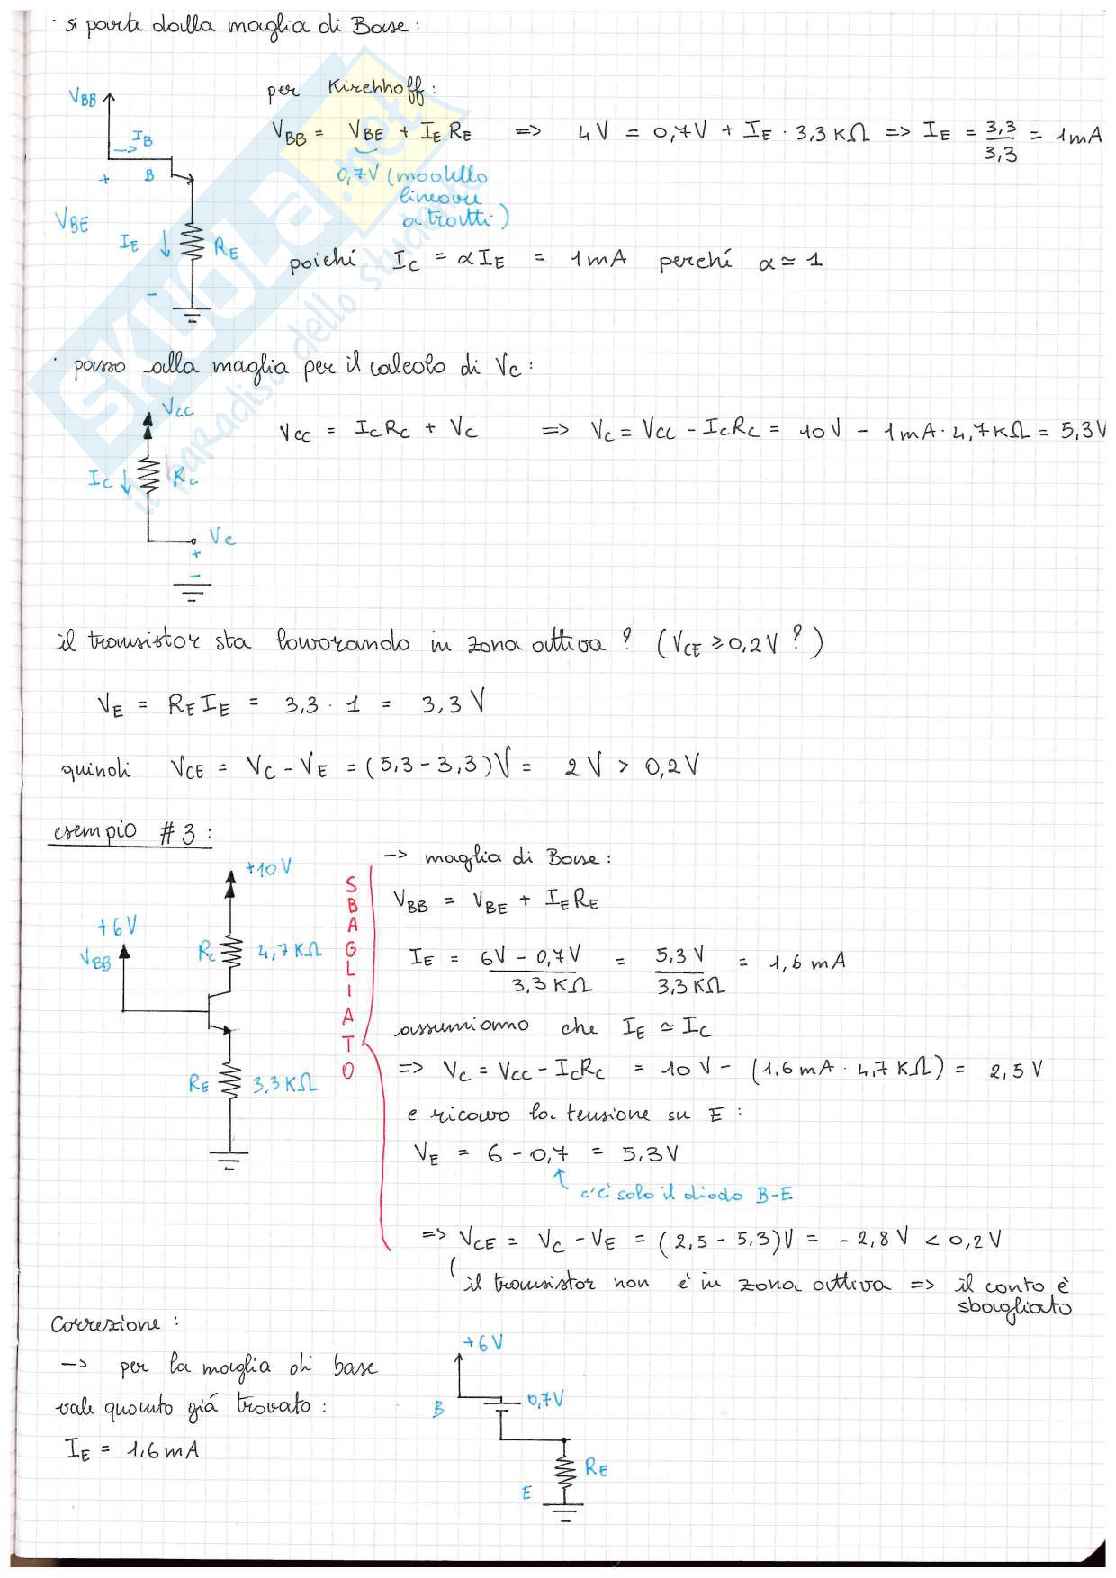 · si parte dalla maglia di Base:
V_BB
I_B
->
+ B
V_BE
I_E ↓ R_E
-
per Kirchhoff:
V_BB = V_BE + I_E R_E => 4V = 0,7V + I_E · 3,3 KΩ => I_E = 3,3/3,3 = 1mA
0,7V (modello
lineare
a tratti)
poiché I_C = α I_E = 1mA perché α ≃ 1
· passo alla maglia per il calcolo di V_C:
V_CC
I_C ↓ R_C
V_C
+
-
V_CC = I_C R_C + V_C => V_C = V_CC - I_C R_C = 10V - 1mA · 4,7 KΩ = 5,3V
il transistor sta lavorando in zona attiva? (V_CE ≥ 0,2V?)
V_E = R_E I_E = 3,3 · 1 = 3,3 V
quindi V_CE = V_C - V_E = (5,3 - 3,3)V = 2V > 0,2V
esempio #3:
+10V
+6V
V_BB
R_C 4,7 KΩ
R_E 3,3 KΩ
SBAGLIATO
-> maglia di Base:
V_BB = V_BE + I_E R_E
I_E = 6V - 0,7V / 3,3 KΩ = 5,3V / 3,3 KΩ = 1,6 mA
assumiamo che I_E ≃ I_C
=> V_C = V_CC - I_C R_C = 10V - (1,6 mA · 4,7 KΩ) = 2,5 V
e ricavo la tensione su E:
V_E = 6 - 0,7 = 5,3V
↑ c'è solo il diodo B-E
=> V_CE = V_C - V_E = (2,5 - 5,3)V = -2,8V < 0,2V
il transistor non è in zona attiva => il conto è
sbagliato
Correzione:
-> per la maglia di base
vale quanto già trovato:
I_E = 1,6 mA
+6V
B 0,7V
R_E
E
SKUOLA.net
il paradiso dello studente